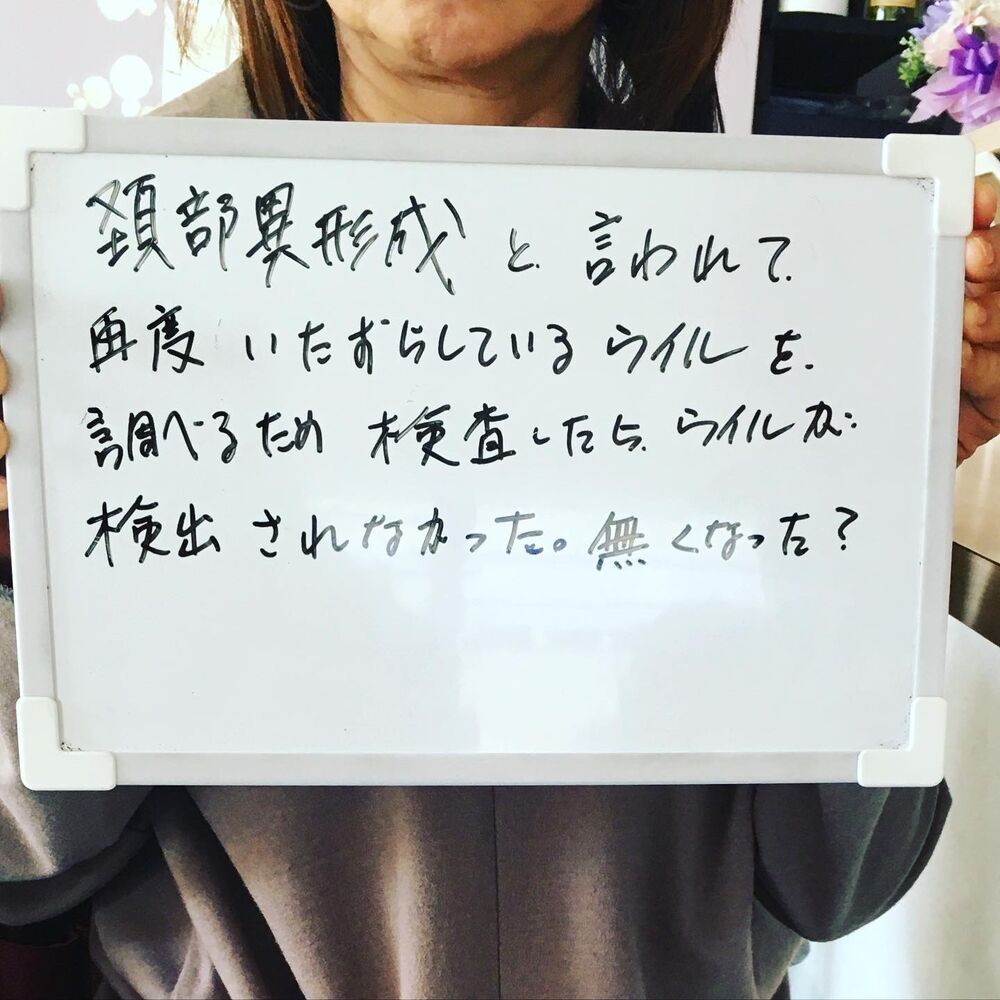 頚部異形成と言われて、
再度いたずらしているウイルを、
調べるため検査したら、ウイルが
検出されなかった。無くなった?